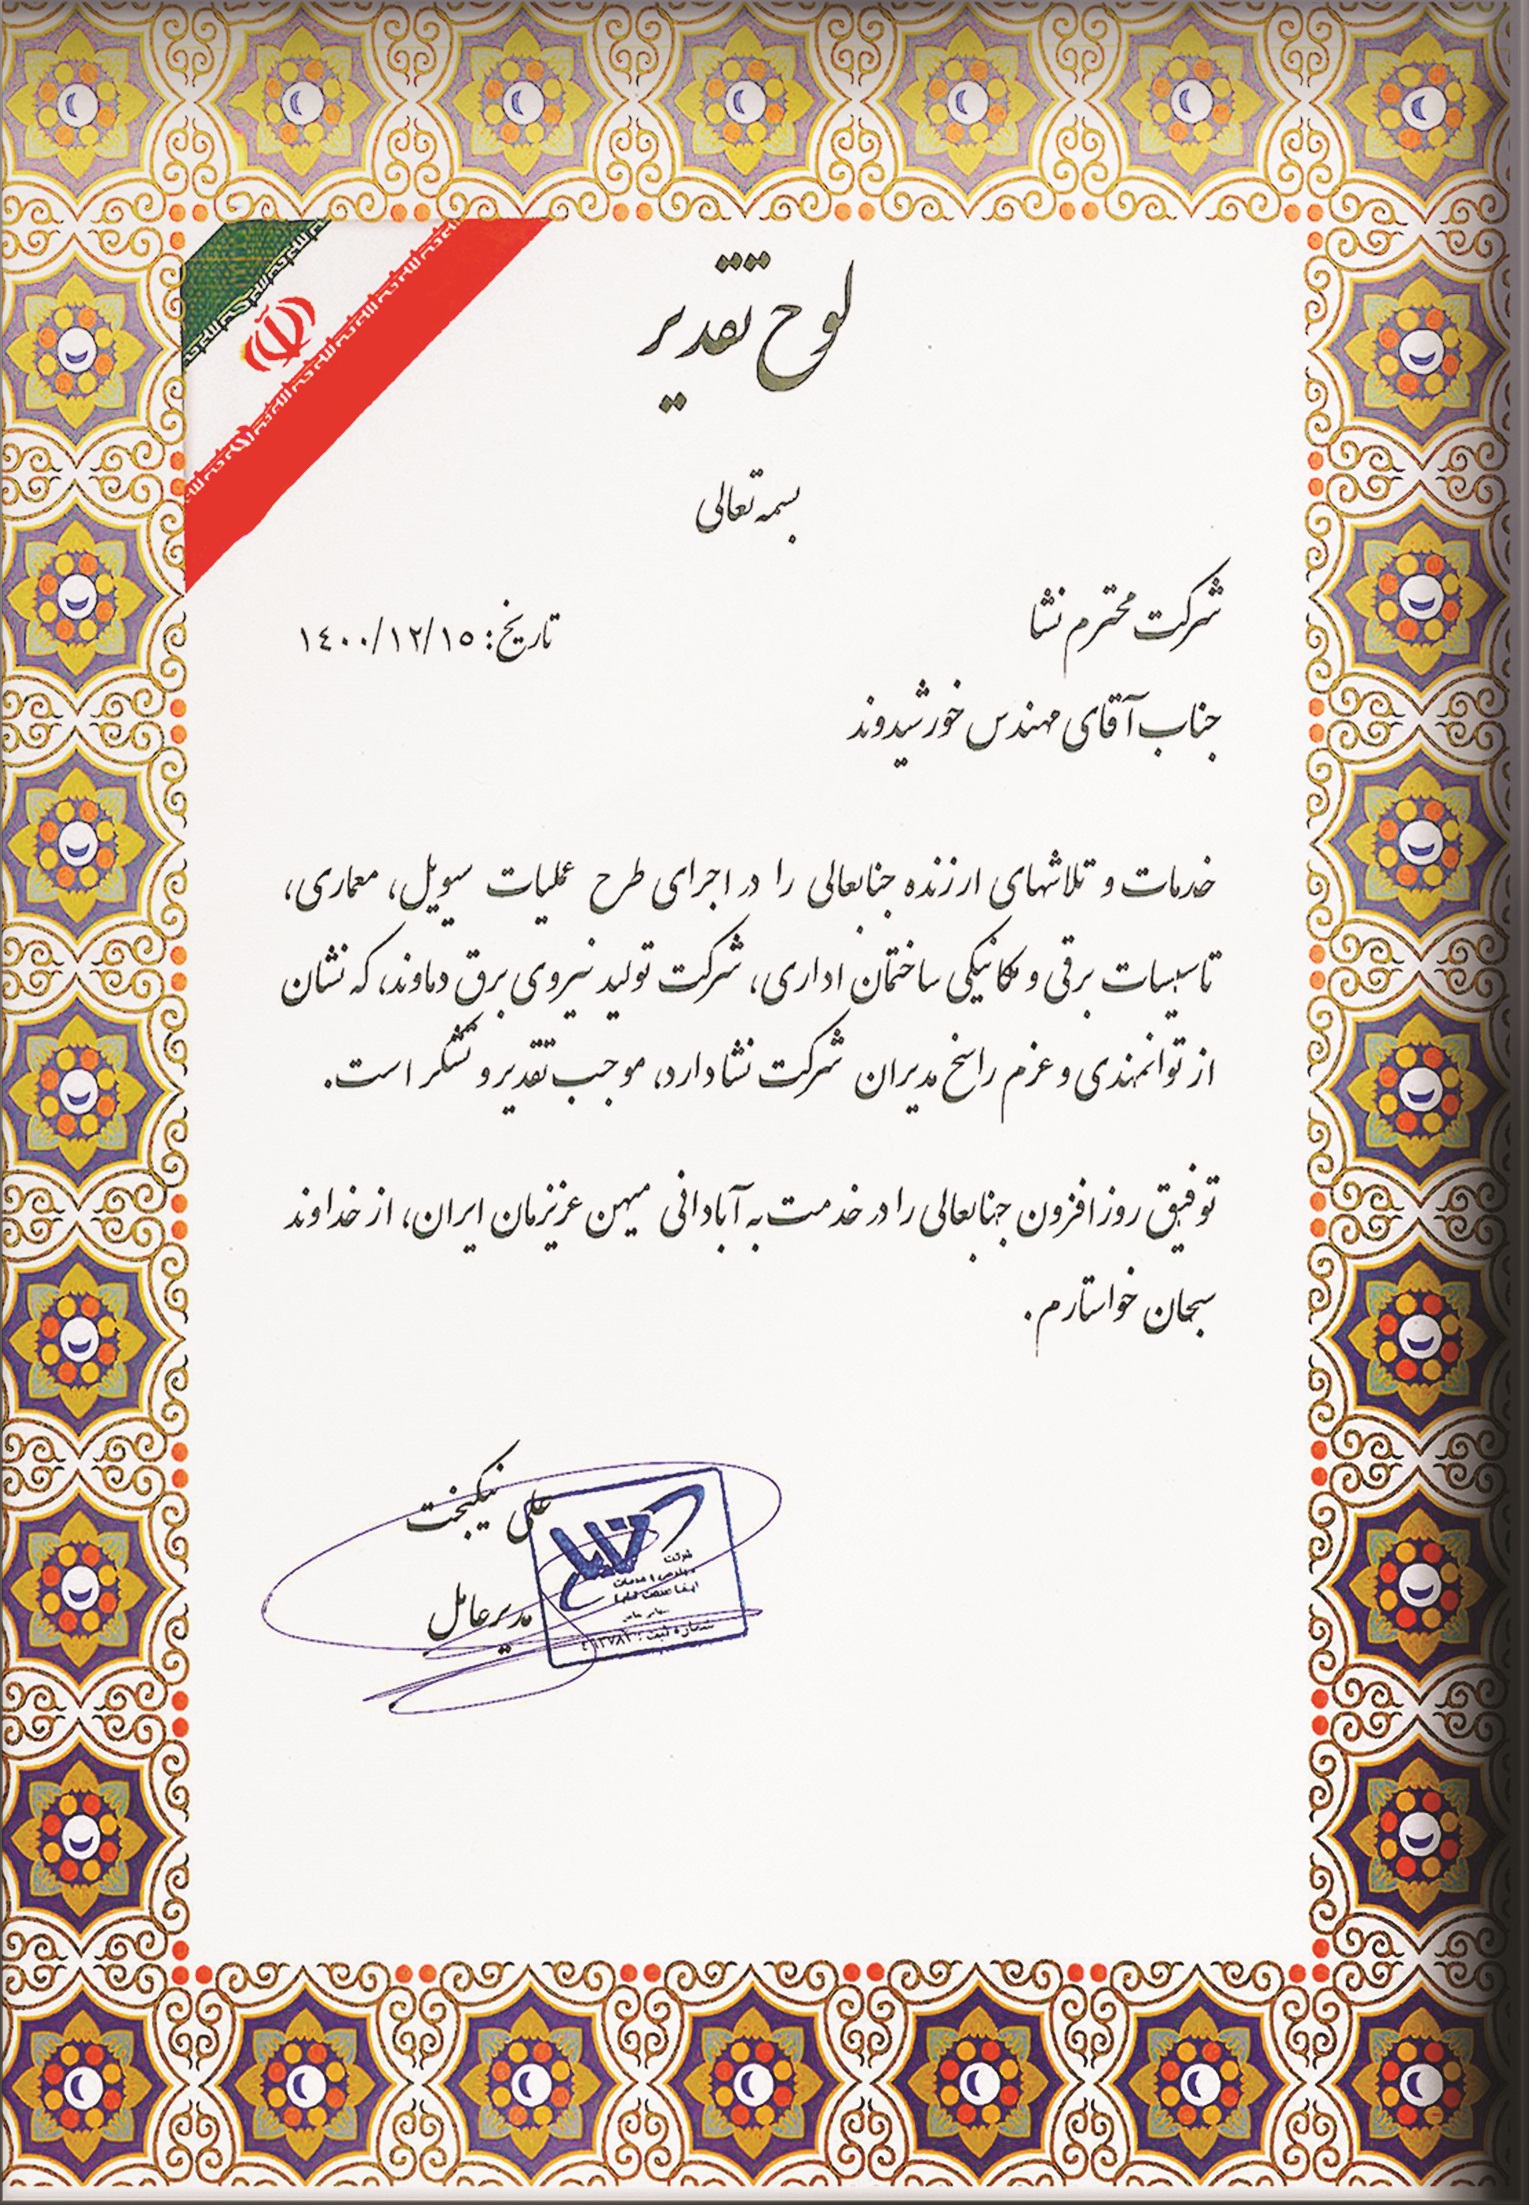 لوح تقدیر
بسمه تعالی
شرکت محترم نشا
تاریخ: ۱۴۰۰/۱۲/۱۵
جناب آقای مهندس خورشیدوند
خدمات و تلاشهای ارزنده جنابعالی را در اجرای طرح عملیات سیویل، معماری،
تاسیسات برقی و مکانیکی ساختمان اداری، شرکت تولید نیروی برق دماوند، که نشان
از توانمندی و عزم راسخ مدیران شرکت نشا دارد، موجب تقدیر و تشکر است.
توفیق روز افزون جنابعالی را در خدمت به آبادانی میهن عزیزمان ایران، از خداوند
سبحان خواستارم.
علی نیکبخت
مدیر عامل
شرکت
شماره ثبت: